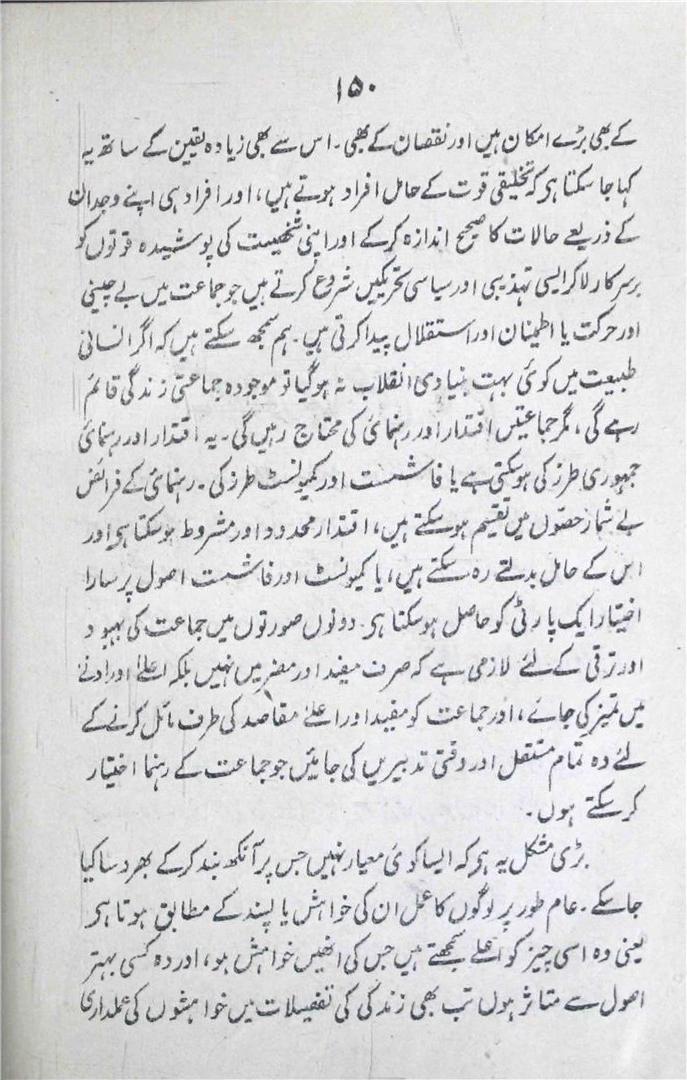 ۱۵۰
کے بھی بڑے امکان ہیں اور نقصان کے بھی۔ اس سے بھی زیادہ یقین کے ساتھ یہ
کہا جا سکتا ہر کہ تخلیقی قوت کے حامل افراد ہوتے ہیں، اور افراد ہی اپنے وجدان
کے ذریعے حالات کا صحیح اندازہ کرکے اور اپنی شخصیت کی پوشیدہ قوتوں کو
برسرکار لا کر ایسی تہذیبی اور سیاسی تحریکیں شروع کرتے ہیں جو جماعت میں بے چینی
اور حرکت یا اطمینان اور استقلال پیدا کرتی ہیں۔ ہم سمجھ سکتے ہیں کہ اگر انسانی
طبیعت میں کوئی بہت بنیادی انقلاب نہ ہوگیا تو موجودہ جماعتی زندگی قائم
رہے گی، مگر جماعتیں اقتدار اور رہنمائی کی محتاج رہیں گی۔ یہ اقتدار اور رہنمائی
جمہوری طرز کی ہوسکتی ہے یا فاشست اور کمیونسٹ طرز کی۔ رہنمائی کے فرائض
بے شمار حصوں میں تقسیم ہوسکتے ہیں، اقتدار محدود اور مشروط ہوسکتا ہر اور
اس کے حامل بدلتے رہ سکتے ہیں، یا کمیونسٹ اور فاشست اصول پر سارا
اختیار ایک پارٹی کو حاصل ہوسکتا ہر۔ دونوں صورتوں میں جماعت کی بہبود
اور ترقی کے لئے لازمی ہے کہ صرف مفید اور مضر میں نہیں بلکہ اعلےٰ اور ادنےٰ
میں تمیز کی جائے، اور جماعت کو مفید اور اعلےٰ مقاصد کی طرف مائل کرنے کے
لئے وہ تمام مستقل اور وقتی تدبیریں کی جائیں جو جماعت کے رہنما اختیار
کر سکتے ہوں۔
بڑی مشکل یہ ہر کہ ایسا کوئی معیار نہیں جس پر آنکھ بند کرکے بھروسا کیا
جاسکے۔ عام طور پر لوگوں کا عمل ان کی خواہش یا پسند کے مطابق ہوتا ہر
یعنی وہ اسی چیز کو اعلےٰ سمجھتے ہیں جس کی انھیں خواہش ہو، اور وہ کسی بہتر
اصول سے متاثر ہوں تب بھی زندگی کی تفصیلات میں خواہشوں کی عملداری